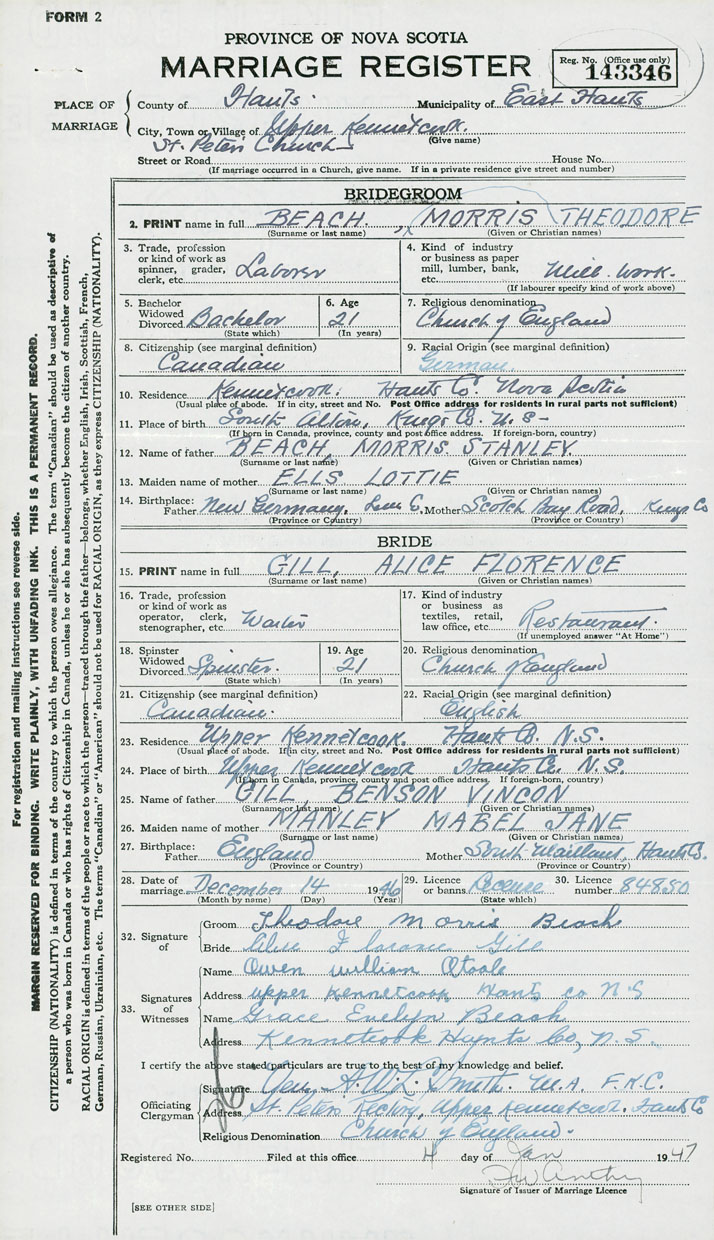 FORM 2
PROVINCE OF NOVA SCOTIA
MARRIAGE REGISTER
Reg. No. (Office use only)
143346
PLACE OF MARRIAGE
County of Hants. Municipality of East Hants
City, Town or Village of Upper Kennetcook.
(Give name)
St. Peters Church
Street or Road House No.
(If marriage occurred in a Church, give name. If in a private residence give street and number)
BRIDEGROOM
2. PRINT name in full BEACH, MORRIS THEODORE
(Surname or last name) (Given or Christian names)
3. Trade, profession or kind of work as spinner, grader, clerk, etc. Laborer
4. Kind of industry or business as paper mill, lumber, bank, etc. Mill work.
(If labourer specify kind of work above)
5. Bachelor Widowed Divorced Bachelor
(State which)
6. Age 21
(In years)
7. Religious denomination
Church of England
8. Citizenship (see marginal definition)
Canadian
9. Racial Origin (see marginal definition)
German
10. Residence Kennetcook. Hants Co. Nova Scotia
(Usual place of abode. If in city, street and No. Post Office address for residents in rural parts not sufficient)
11. Place of birth South Alton, Kings Co. N.S-
(If born in Canada, province, county and post office address. If foreign-born, country)
12. Name of father BEACH, MORRIS STANLEY
(Surname or last name) (Given or Christian names)
13. Maiden name of mother ELLS LOTTIE
(Surname or last name) (Given or Christian names)
14. Birthplace:
Father New Germany, Lun C. Mother Scotch Bay Road, Kings Co
(Province or Country) (Province or Country)
BRIDE
15. PRINT name in full GILL, ALICE FLORENCE
(Surname or last name) (Given or Christian names)
16. Trade, profession or kind of work as operator, clerk, stenographer, etc. Waiter
17. Kind of industry or business as textiles, retail, law office, etc. Restaurant.
(If unemployed answer "At Home")
18. Spinster Widowed Divorced Spinster.
(State which)
19. Age 21
(In years)
20. Religious denomination
Church of England
21. Citizenship (see marginal definition)
Canadian.
22. Racial Origin (see marginal definition)
English
23. Residence Upper Kennetcook. Hants Co. N.S.
(Usual place of abode. If in city, street and No. Post Office address for residents in rural parts not sufficient)
24. Place of birth Upper Kennetcook Hants Co. N.S.
(If born in Canada, province, county and post office address. If foreign-born, country)
25. Name of father GILL, BENSON VINCON
(Surname or last name) (Given or Christian names)
26. Maiden name of mother MANLEY MABEL JANE
(Surname or last name) (Given or Christian names)
27. Birthplace:
Father England Mother South Maitland, Hants Co.
(Province or Country) (Province or Country)
28. Date of marriage December 14 1946
(Month by name) (Day) (Year)
29. Licence or banns License
(State which)
30. Licence number 84850
32. Signature of
Groom Theodore Morris Beach
Bride Alice Florance Gill
33. Signatures of Witnesses
Name Owen william Otoole
Address upper Kennetcook Hants co N S
Name Grace Evelyn Beach
Address Kennetcook Haynts Co, N.S.
I certify the above stated particulars are true to the best of my knowledge and belief.
Officiating Clergyman
Signature A. W. L. Smith. M.A. F.K.C.
Address St. Peters Rectory, Upper Kennetcook. Hants Co
Religious Denomination Church of England.
Registered No. Filed at this office 4 day of Jan 1947
Signature of Issuer of Marriage Licence
[SEE OTHER SIDE]
For registration and mailing instructions see reverse side.
MARGIN RESERVED FOR BINDING. WRITE PLAINLY, WITH UNFADING INK. THIS IS A PERMANENT RECORD.
CITIZENSHIP (NATIONALITY) is defined in terms of the country to which the person owes allegiance. The term "Canadian" should be used as descriptive of
a person who was born in Canada or who has rights of Citizenship in Canada, unless he or she has subsequently become the citizen of another country.
RACIAL ORIGIN is defined in terms of the people or race to which the person—traced through the father—belongs, whether English, Irish, Scottish, French,
German, Russian, Ukrainian, etc. The terms "Canadian" or "American" should not be used for RACIAL ORIGIN, as they express CITIZENSHIP (NATIONALITY).